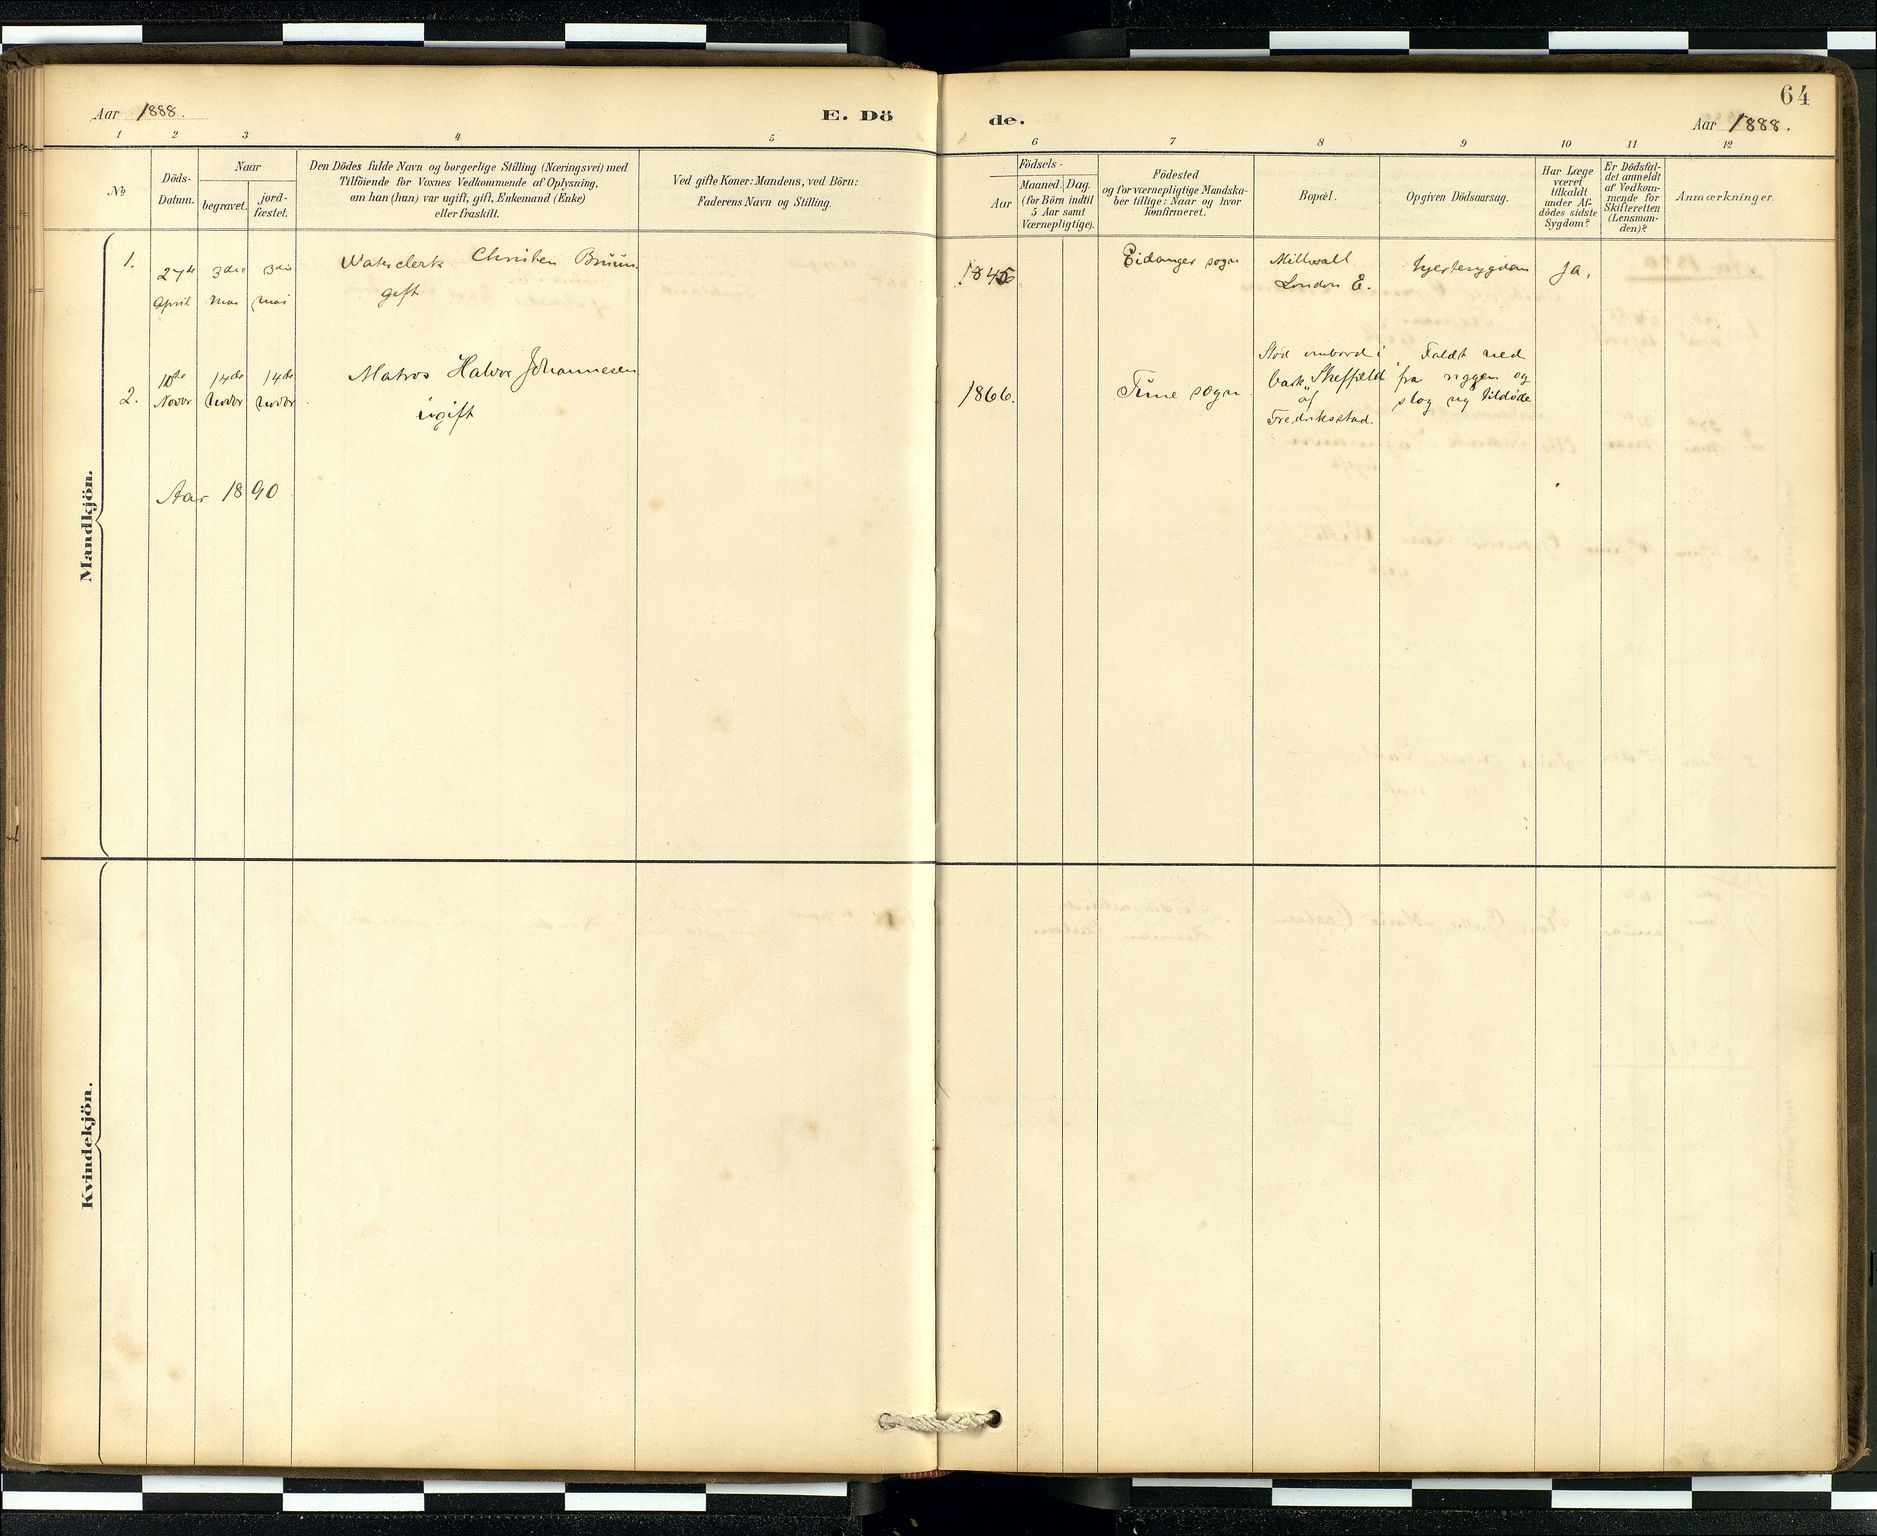 Aar 1888.
E. Dö
de.
64
Aar 1888.
1 2 3 4 5 6 7 8 9 10 11 12
No
Döds-
Datum.
Naar
begravet.
jord-
fæstet.
Den Dödes fulde Navn og borgerlige Stilling (Næringsvei) med
Tilföiende for Voxnes Vedkommende af Oplysning,
om han (hun) var ugift, gift, Enkemand (Enke)
eller fraskilt.
Ved gifte Koner: Mandens, ved Börn:
Faderens Navn og Stilling.
Födsels-
Aar
Maaned.
Dag.
(for Börn indtil
5 Aar samt
Værnepligtige).
Födested
og for værnepligtige Mandska-
ber tillige: Naar og hvor
konfirmeret.
Bopæl.
Opgiven Dödsaarsag.
Har Læge
været
tilkaldt
under Af-
dödes sidste
Sygdom?
Er Dödsfal-
det anmeldt
af Vedkom-
mende for
Skifteretten
(Lensman-
den)?
Anmærkninger.
Mandkjön.
1.
27de
April
3die
mai
3die
mai
Waterclerk Christen Bruun
gift
1845
Eidanger sogn
Millwall
London E.
hjertesygdom
Ja.
2.
10de
Novbr
14de
Novbr
14de
Novbr
Matros Halvor Johannesen
ugift
1866.
Tune sogn.
Stod ombord i
bark "Sheffield"
af
Fredriksstad.
Faldt ned
fra riggen og
slog sig tildøde
Aar 1890
Kvindekjön.